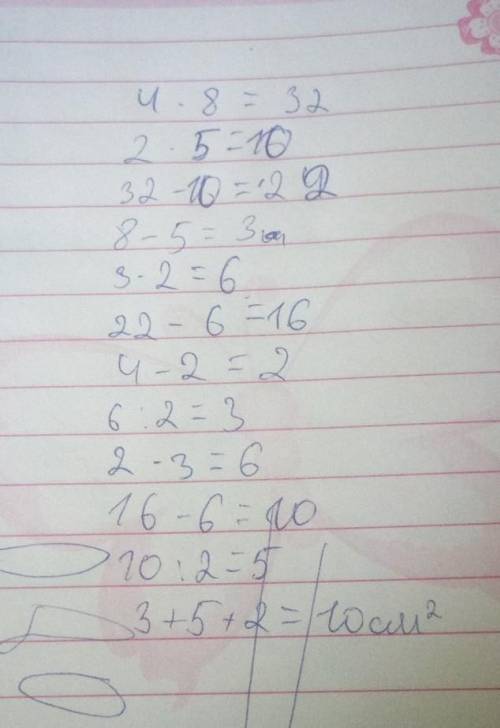 4 · 8 = 32
2 · 5 = 10
32 - 10 = 22
8 - 5 = 3см
3 · 2 = 6
22 - 6 = 16
4 - 2 = 2
6 : 2 = 3
2 · 3 = 6
16 - 6 = 10
10 : 2 = 5
3 + 5 + 2 = 10см²